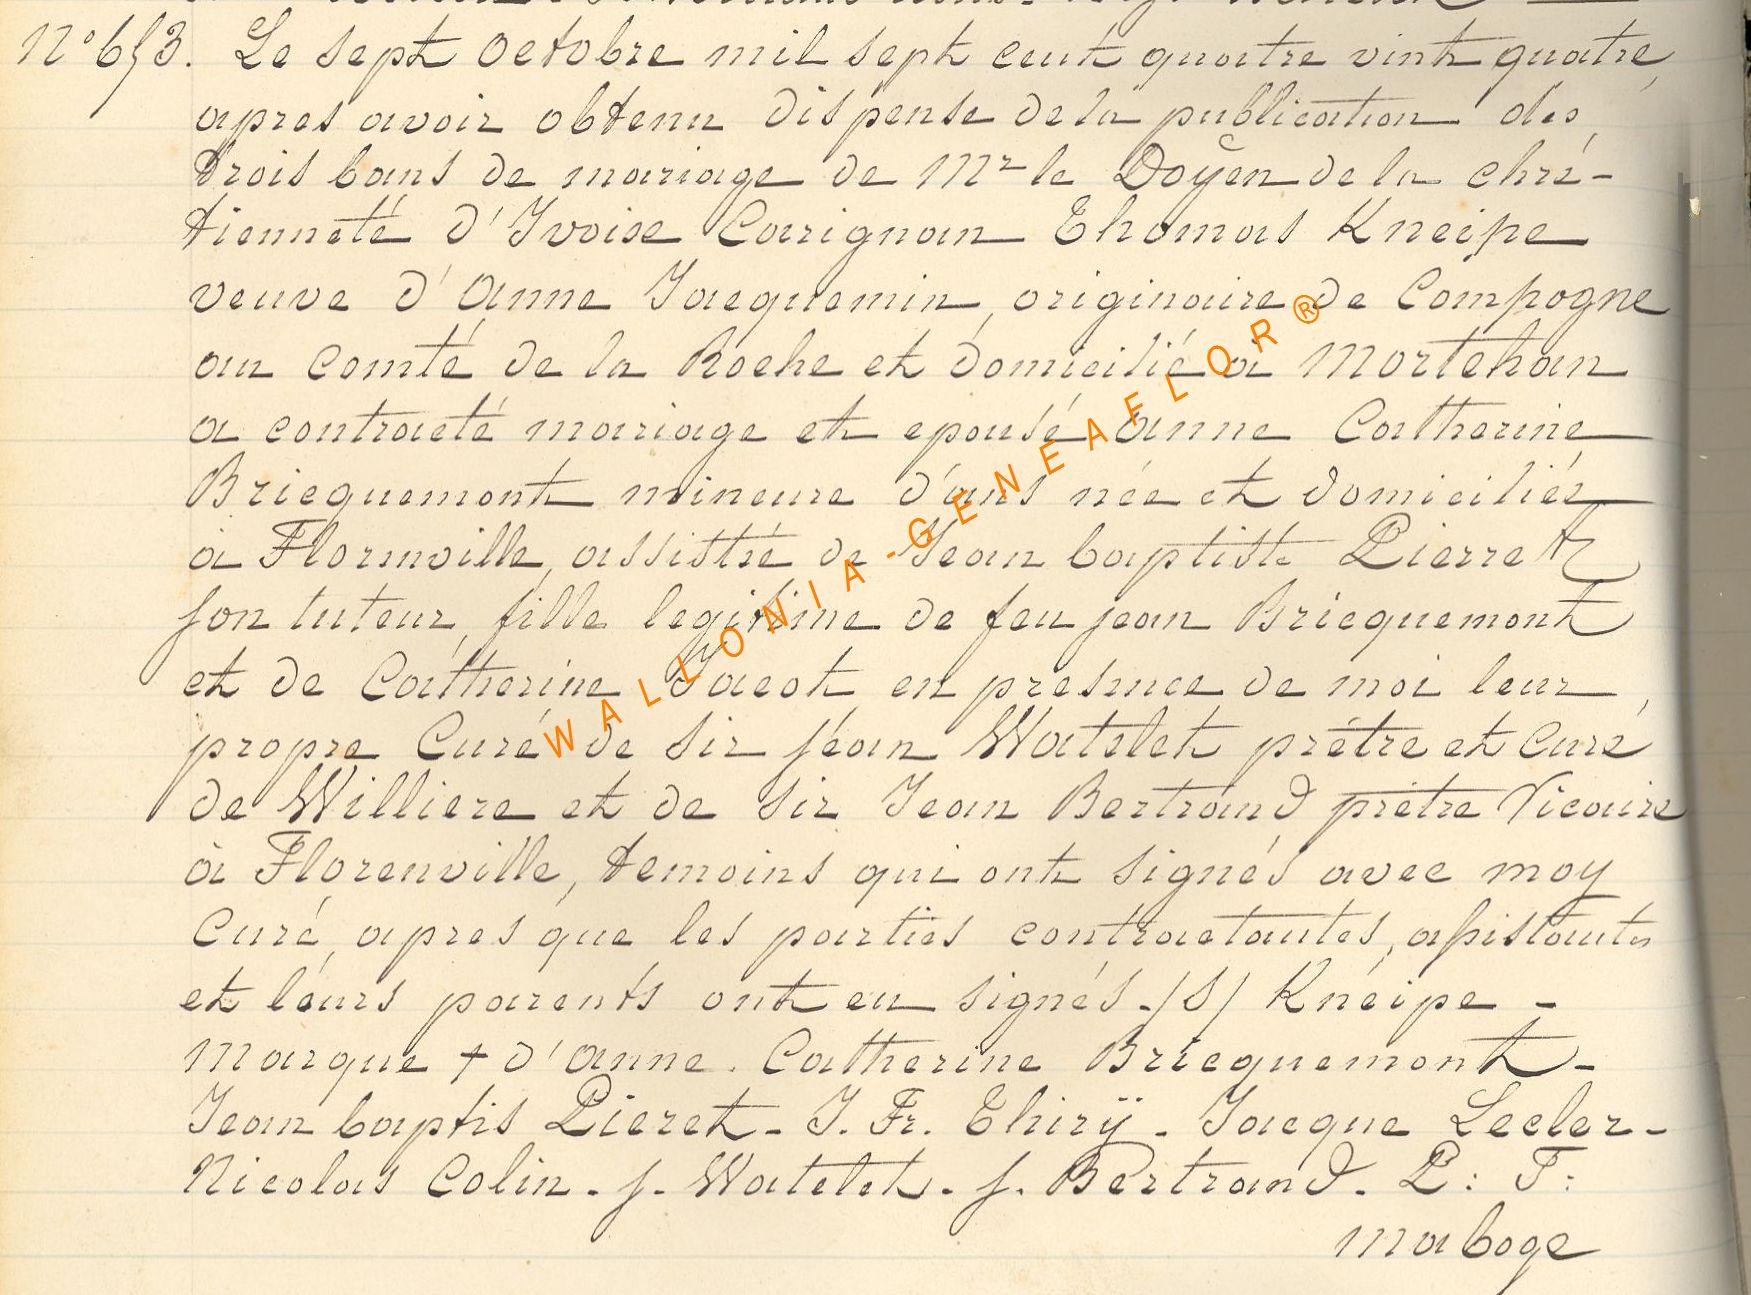 N° 653. Le sept octobre mil sept cent quatre vint quatre,
apres avoir obtenu dispense de la publication des
trois bans de mariage de Mr le Doÿen de la chré-
tienneté d'Ivoise Carignan Thomas Kneipe
veuve d'Anne Jacquemin, originaire de Compogne
au comté de la Roche et domicilié à Mortehan
a contracté mariage et epousé Anne Catherine
Bricquemont mineure d'ans née et domiciliée
à Florenville, assistée de Jean baptiste Pierret
son tuteur, fille legitime de feu jean Bricquemont
et de Catherine Jacot en presence de moi leur
propre Curé de Sir jean Watelet prétre et Curé
de Williere et de Sir Jean Bertrand prétre Vicaire
à Florenville, temoins qui ont signés avec moy
Curé, apres que les parties contractantes, assistantes
et leurs parents ont eu signés - /S/ Kneipe -
Marque + d'Anne Catherine Bricquemont -
Jean baptis Pieret - J. Fr. Thirÿ - Jacque Lecler -
Nicolas Colin - j. Watelet - j. Bertrand - P: F:
Maboge
WALLONIA-GENEAFLOR®